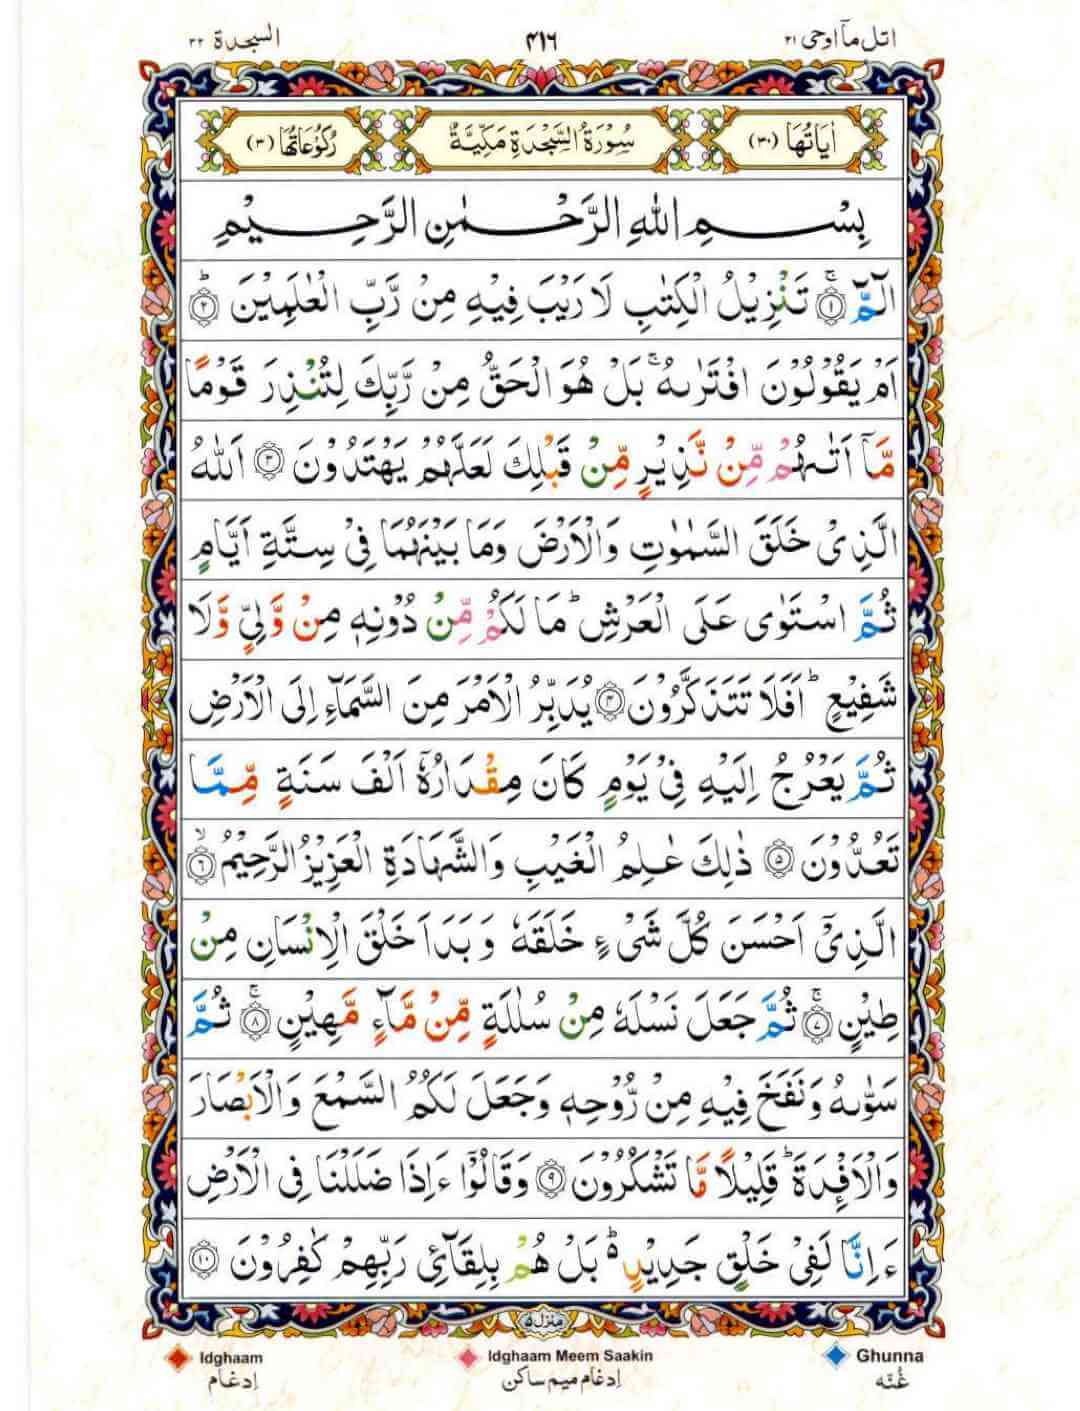 اتل مآ اوحی ۲۱ ۴۱۶ السجدة ۳۲
اٰيَاتُهَا (۳۰) سُوْرَةُ السَّجْدَةِ مَكِّيَّةٌ رُكُوْعَاتُهَا (۳)
بِسْمِ اللهِ الرَّحْمٰنِ الرَّحِيْمِ
الٓمّٓ ۚ ۝۱ تَنْزِيْلُ الْكِتٰبِ لَا رَيْبَ فِيْهِ مِنْ رَّبِّ الْعٰلَمِيْنَ ؕ ۝۲
اَمْ يَقُوْلُوْنَ افْتَرٰىهُ ۚ بَلْ هُوَ الْحَقُّ مِنْ رَّبِّكَ لِتُنْذِرَ قَوْمًا
مَّاۤ اَتٰىهُمْ مِّنْ نَّذِيْرٍ مِّنْ قَبْلِكَ لَعَلَّهُمْ يَهْتَدُوْنَ ۝۳ اَللهُ
الَّذِىْ خَلَقَ السَّمٰوٰتِ وَالْاَرْضَ وَمَا بَيْنَهُمَا فِىْ سِتَّةِ اَيَّامٍ
ثُمَّ اسْتَوٰى عَلَى الْعَرْشِ ؕ مَا لَكُمْ مِّنْ دُوْنِهٖ مِنْ وَّلِىٍّ وَّلَا
شَفِيْعٍ ؕ اَفَلَا تَتَذَكَّرُوْنَ ۝۴ يُدَبِّرُ الْاَمْرَ مِنَ السَّمَآءِ اِلَى الْاَرْضِ
ثُمَّ يَعْرُجُ اِلَيْهِ فِىْ يَوْمٍ كَانَ مِقْدَارُهٗۤ اَلْفَ سَنَةٍ مِّمَّا
تَعُدُّوْنَ ۝۵ ذٰلِكَ عٰلِمُ الْغَيْبِ وَالشَّهَادَةِ الْعَزِيْزُ الرَّحِيْمُ ۙ ۝۶
الَّذِىْۤ اَحْسَنَ كُلَّ شَىْءٍ خَلَقَهٗ وَ بَدَاَ خَلْقَ الْاِنْسَانِ مِنْ
طِيْنٍ ۚ ۝۷ ثُمَّ جَعَلَ نَسْلَهٗ مِنْ سُلٰلَةٍ مِّنْ مَّآءٍ مَّهِيْنٍ ۚ ۝۸ ثُمَّ
سَوّٰىهُ وَنَفَخَ فِيْهِ مِنْ رُّوْحِهٖ وَجَعَلَ لَكُمُ السَّمْعَ وَالْاَبْصَارَ
وَالْاَفْئِدَةَ ؕ قَلِيْلًا مَّا تَشْكُرُوْنَ ۝۹ وَقَالُوْۤا ءَاِذَا ضَلَلْنَا فِى الْاَرْضِ
ءَاِنَّا لَفِىْ خَلْقٍ جَدِيْدٍ ؕ۬ بَلْ هُمْ بِلِقَآئِ رَبِّهِمْ كٰفِرُوْنَ ۝۱۰
منزل ۵
Idghaam Idghaam Meem Saakin Ghunna
اِدغام اِدغام میم ساکن غُنّه